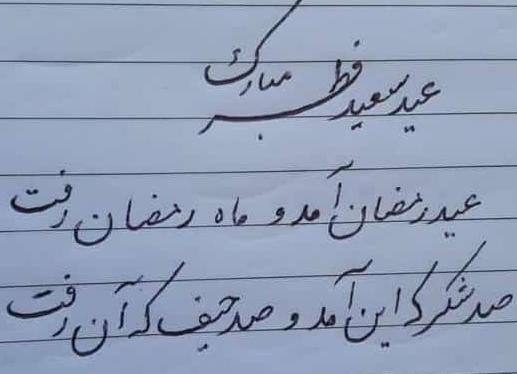 عید سعید فطر مبارک
عید رمضان آمد و ماه رمضان رفت
صد شکر که این آمد و صد حیف که آن رفت